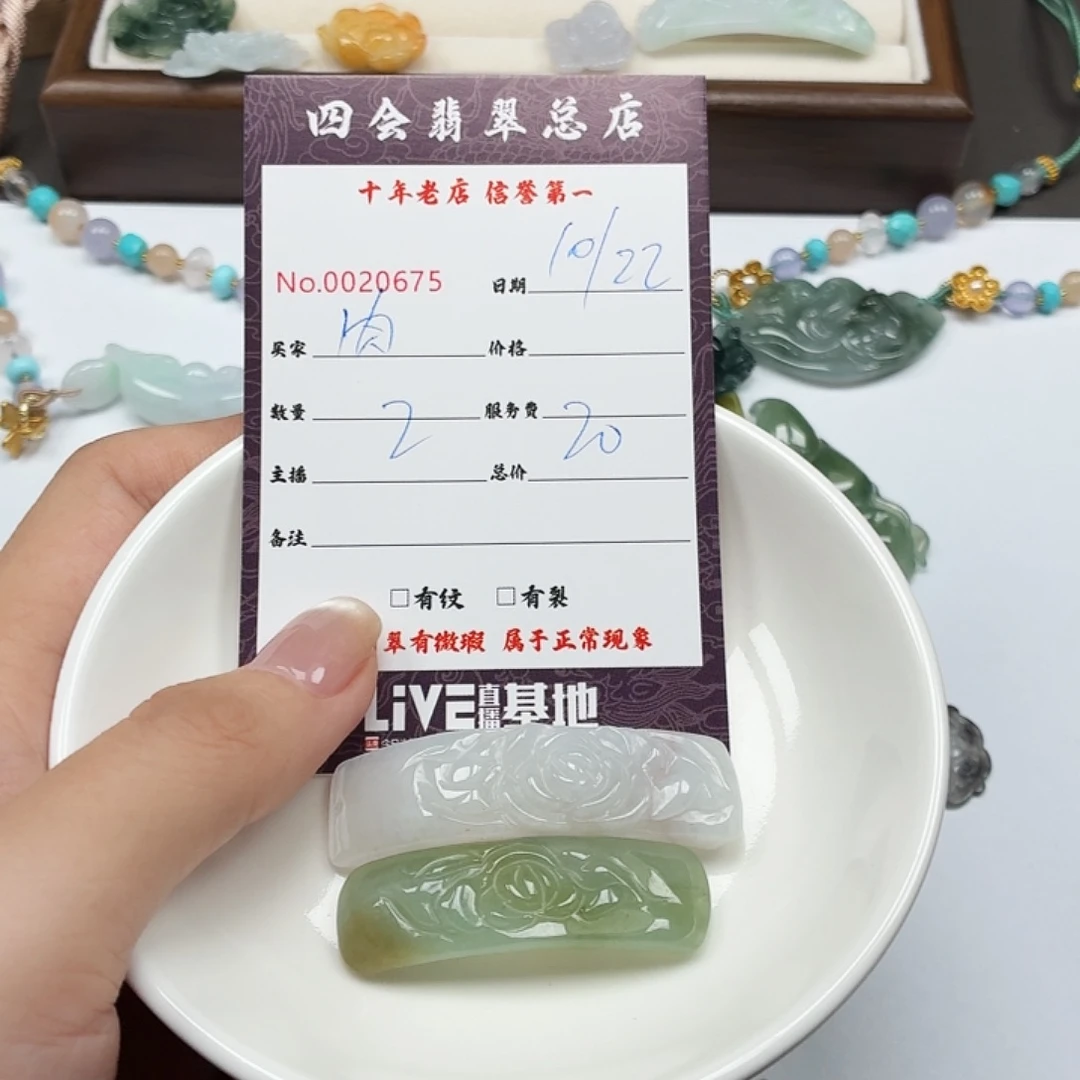 四会翡翠总店
十年老店 信誉第一
No.0020675 日期 10/22
买家 肉 价格
数量 2 服务费 20
主播 总价
备注
□有纹 □有裂
翠有微瑕 属于正常现象
LiVE直播基地